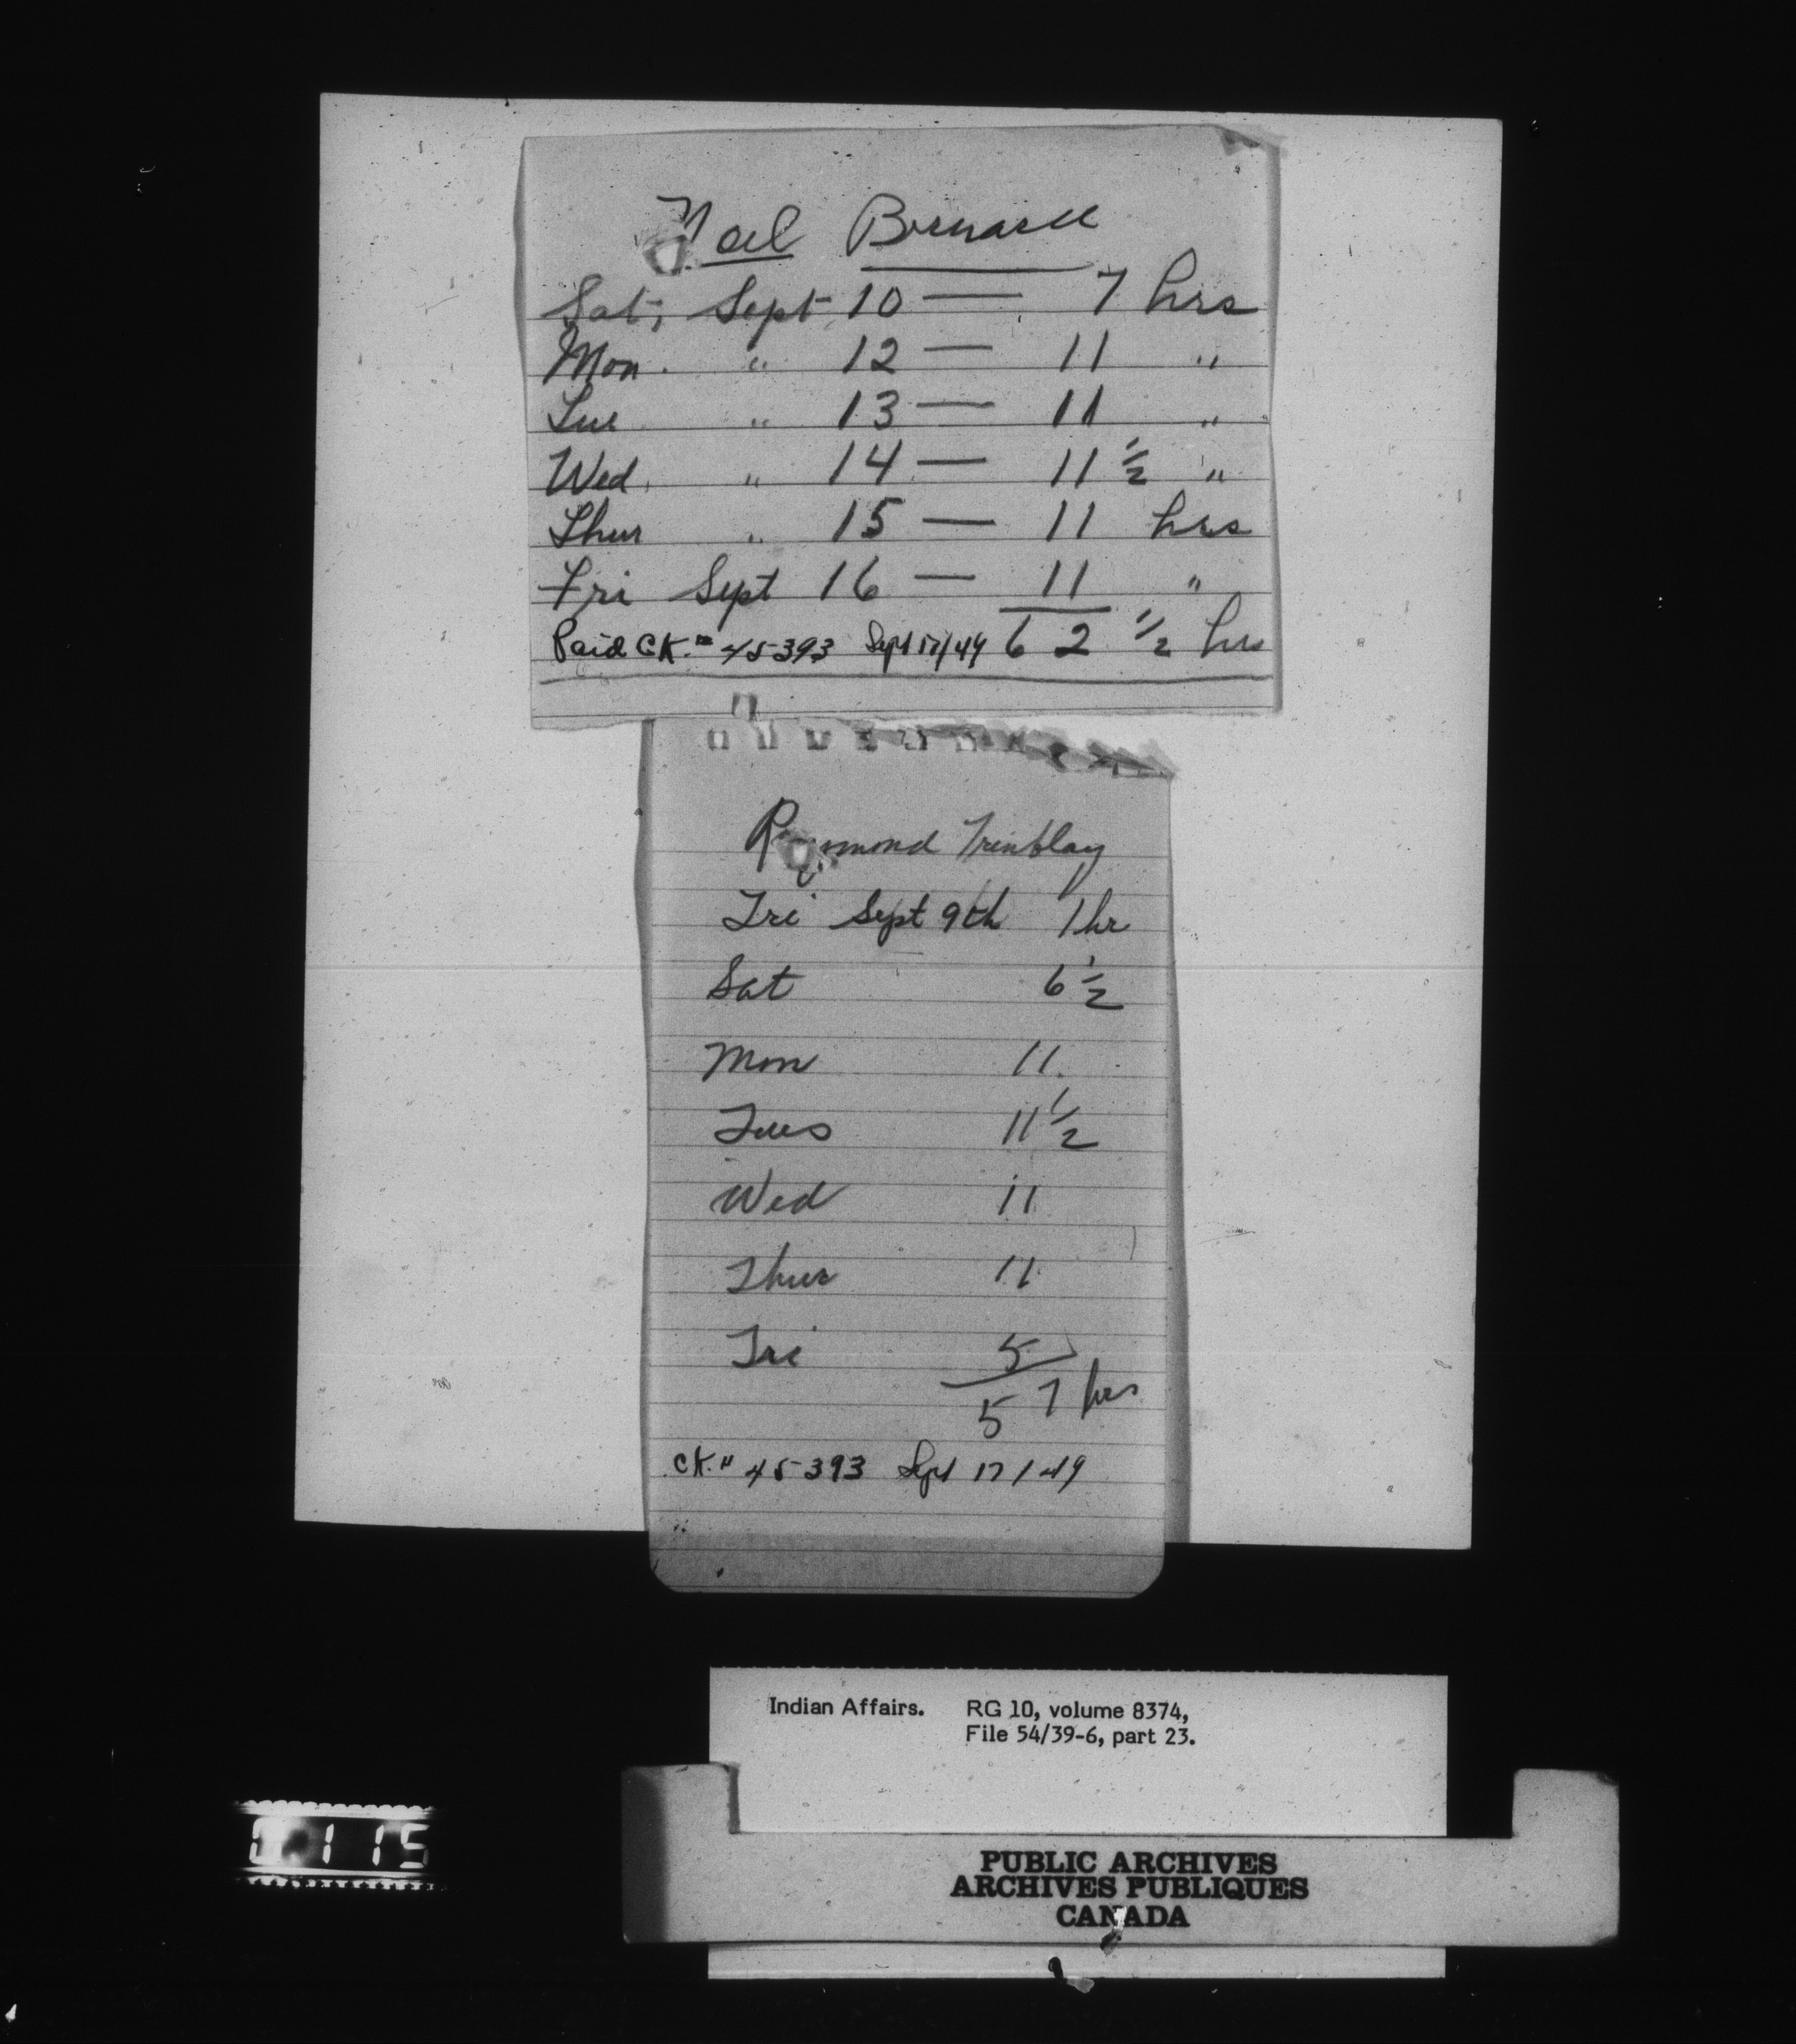 Noel Bernard
Sat, Sept 10 — 7 hrs
Mon. " 12 — 11 "
Tue " 13 — 11 "
Wed. " 14 — 11 1/2 "
Thur " 15 — 11 hrs
Fri Sept 16 — 11 "
Paid CK.# 45393 Sept 17/49 62 1/2 hrs
Raymond Trinblay
Fri Sept 9th 1 hr
Sat 6 1/2
Mon 11
Tues 11 1/2
Wed 11
Thur 11
Fri 5
57 hrs
CK." 45393 Sept 17/49
Indian Affairs. RG 10, volume 8374,
File 54/39-6, part 23.
0115
PUBLIC ARCHIVES
ARCHIVES PUBLIQUES
CANADA